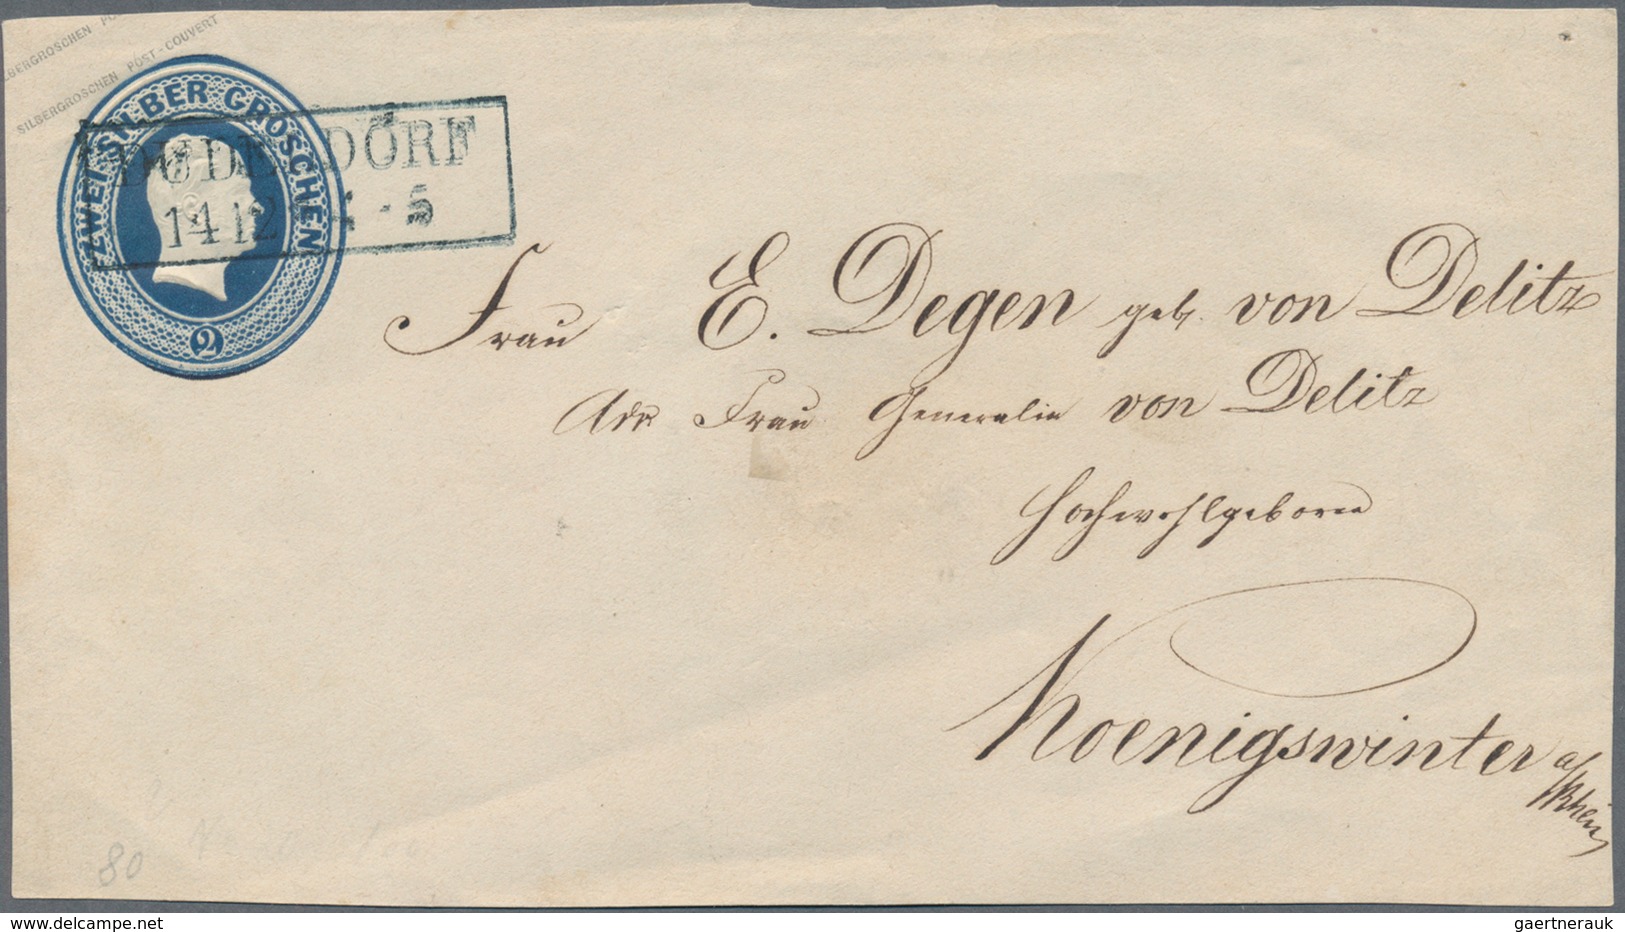 SILBERGROSCHEN POST-COUVERT
ZWEI SILBER GROSCHEN
2
DUDELDORF
14 12 4-5
Frau E. Degen geb. von Delitz
Adr Frau Generalin von Delitz
Hochwohlgeboren
Koenigswinter a/Rhein
80
delcampe.net
gaertnerauk